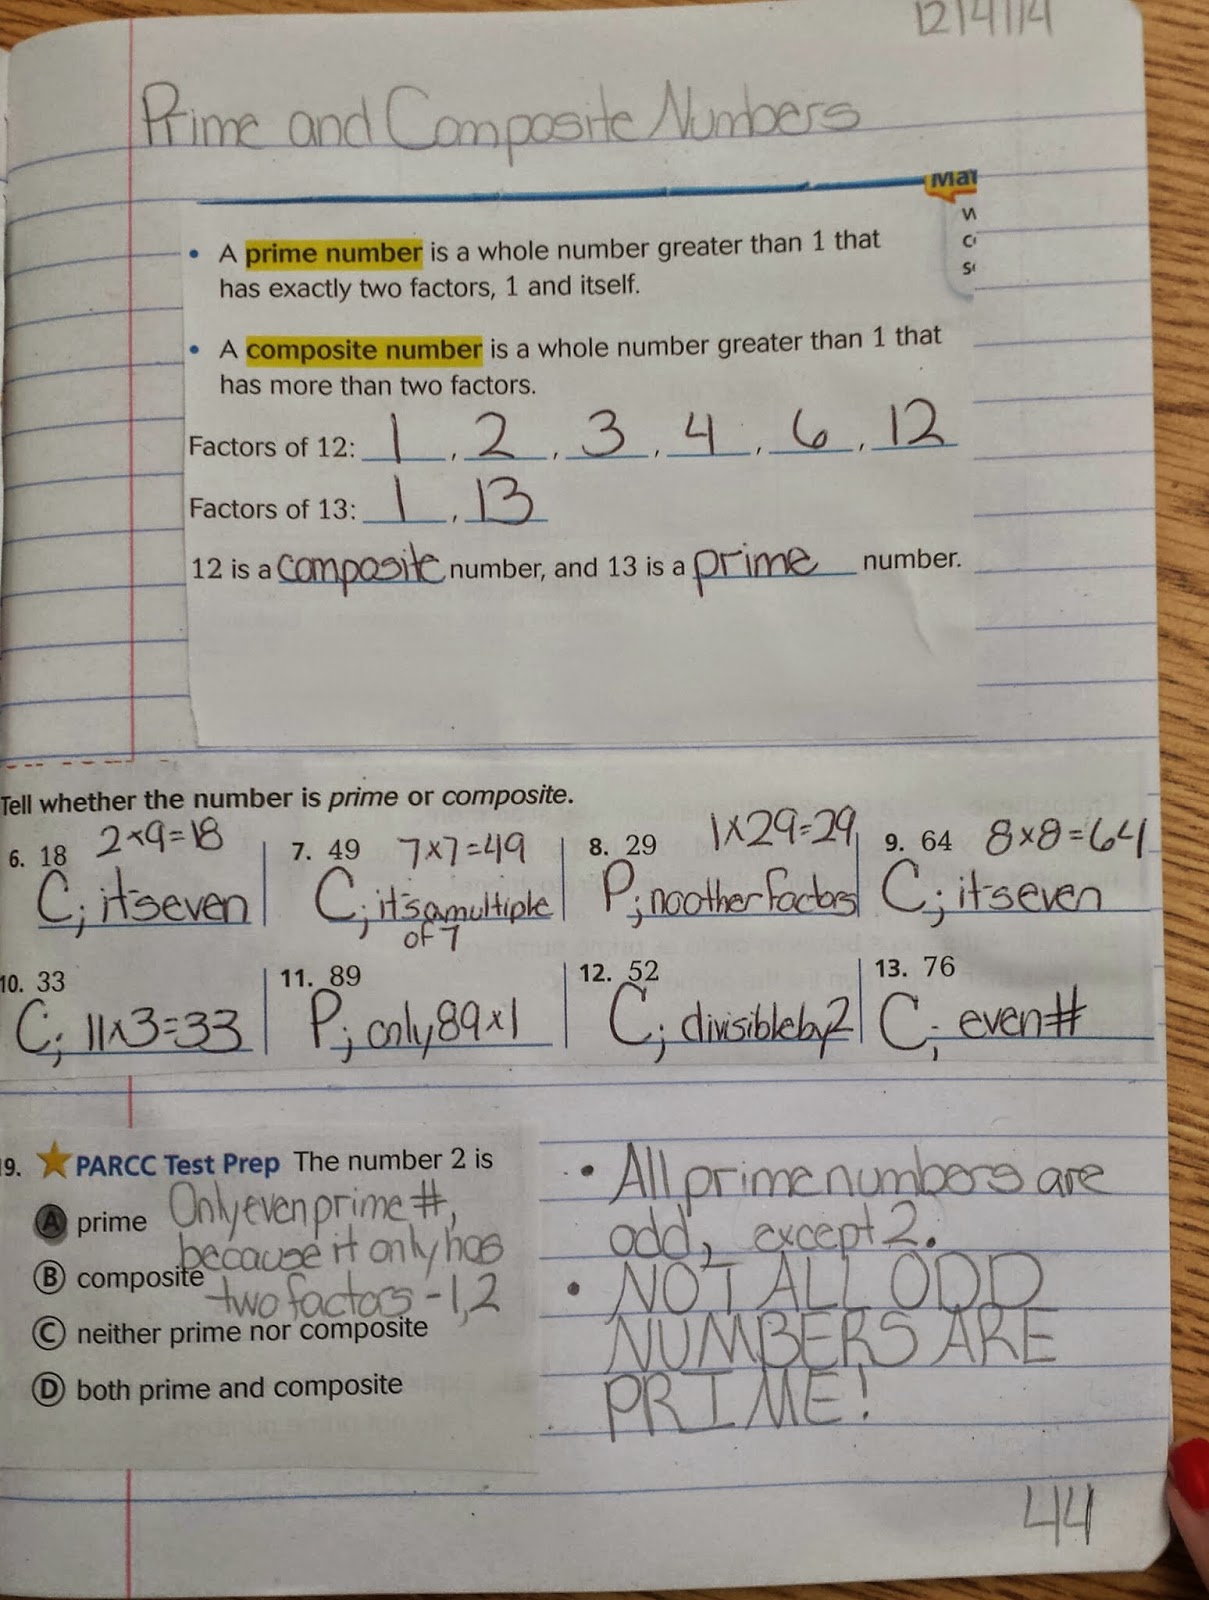 12/4/14
Prime and Composite Numbers
Mat
• A prime number is a whole number greater than 1 that
has exactly two factors, 1 and itself.
• A composite number is a whole number greater than 1 that
has more than two factors.
Factors of 12: 1, 2, 3, 4, 6, 12
Factors of 13: 1, 13
12 is a composite number, and 13 is a prime number.
Tell whether the number is prime or composite.
6. 18 2x9=18
C; it's even
7. 49 7x7=49
C; it's a multiple
of 7
8. 29 1x29=29
P; no other factors
9. 64 8x8=64
C; it's even
10. 33
C; 11x3=33
11. 89
P; only 89x1
12. 52
C; divisible by 2
13. 76
C; even #
9. PARCC Test Prep The number 2 is
A prime Only even prime #,
because it only has
B composite
two factors - 1,2
C neither prime nor composite
D both prime and composite
• All prime numbers are
odd, except 2.
• NOT ALL ODD
NUMBERS ARE
PRIME!
44